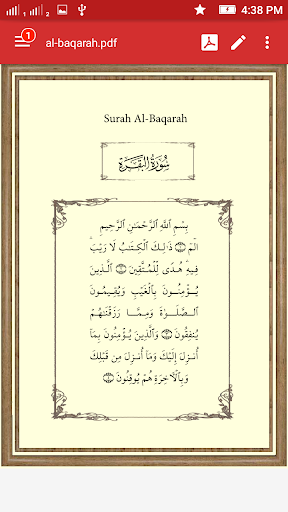 1 1 4:38 PM
1
al-baqarah.pdf
Surah Al-Baqarah
سُورَةُ الْبَقَرَة
بِسْمِ ٱللَّهِ ٱلرَّحْمَٰنِ ٱلرَّحِيمِ
الٓمٓ ۝ ذَٰلِكَ ٱلْكِتَٰبُ لَا رَيْبَ ۛ
فِيهِ ۛ هُدًى لِّلْمُتَّقِينَ ۝ ٱلَّذِينَ
يُؤْمِنُونَ بِٱلْغَيْبِ وَيُقِيمُونَ
ٱلصَّلَوٰةَ وَمِمَّا رَزَقْنَٰهُمْ
يُنفِقُونَ ۝ وَٱلَّذِينَ يُؤْمِنُونَ بِمَآ
أُنزِلَ إِلَيْكَ وَمَآ أُنزِلَ مِن قَبْلِكَ
وَبِٱلْءَاخِرَةِ هُمْ يُوقِنُونَ ۝